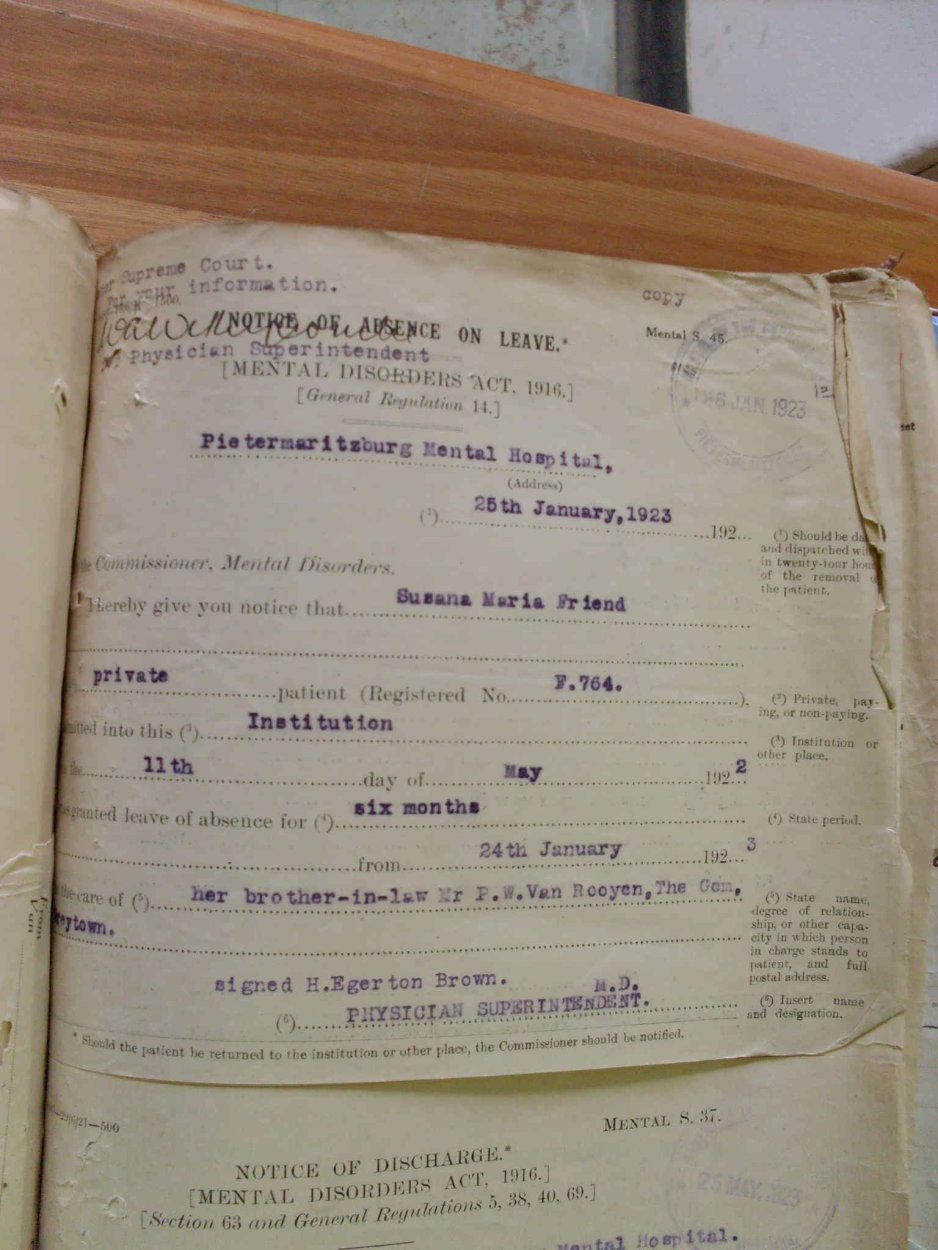 Supreme Court.
your information.
copy
NOTICE OF ABSENCE ON LEAVE.*
Mental S. 45.
Physician Superintendent
[MENTAL DISORDERS ACT, 1916.]
[General Regulation 14.]
JAN. 1923
Pietermaritzburg Mental Hospital,
(Address)
(1) 25th January, 1923 192
(1) Should be da
and dispatched wi
in twenty-four hou
of the removal o
the patient.
Commissioner, Mental Disorders.
I hereby give you notice that Susana Maria Friend
private patient (Registered No. F.764. ),
(2) Private, pay-
ing, or non-paying.
mitted into this (3) Institution
(3) Institution or
other place.
the 11th day of May 192 2
granted leave of absence for (4) six months
(4) State period.
from 24th January 192 3
the care of (5) her brother-in-law Mr P.W.Van Rooyen, The Com,
eytown.
(5) State name,
degree of relation-
ship, or other capa-
city in which person
in charge stands to
patient, and full
postal address.
signed H.Egerton Brown. M.D.
(6) PHYSICIAN SUPERINTENDENT.
(6) Insert name
and designation.
* Should the patient be returned to the institution or other place, the Commissioner should be notified.
29/6/21—500
MENTAL S. 37.
NOTICE OF DISCHARGE.*
[MENTAL DISORDERS ACT, 1916.]
[Section 63 and General Regulations 5, 38, 40, 69.]
25 MAY. 1923
Mental Hospital.
From
Van